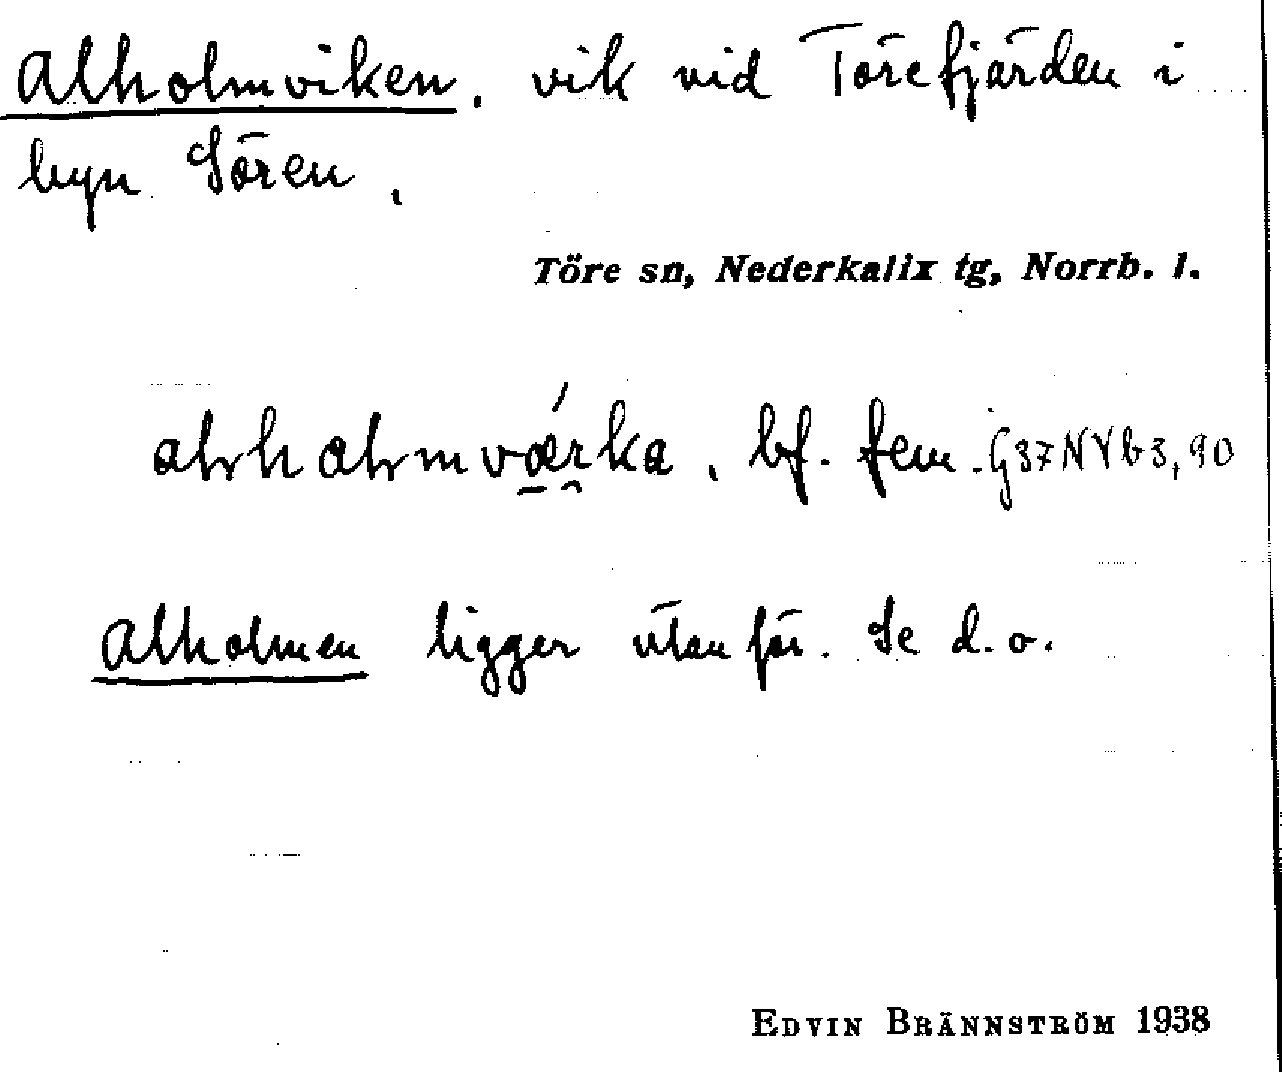 Alholmviken, vik vid Törefjärden i
byn Sören.
Töre sn, Nederkalix tg, Norrb. l.
bf. fem. G37NYb3,90
Alholmen ligger utanför. Se d.o.
EDVIN BRÄNNSTRÖM 1938